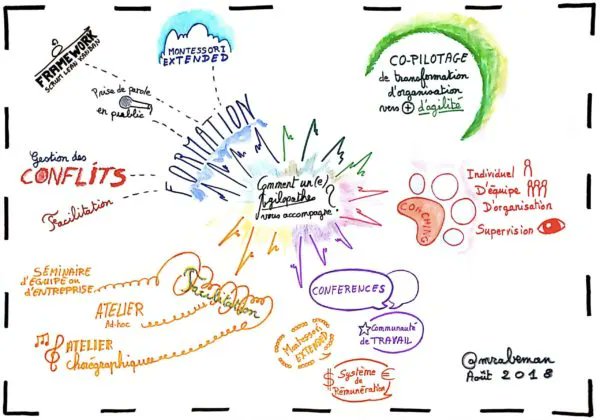 FRAMEWORK
SCRUM LEAN KANBAN
MONTESSORI
EXTENDED
Prise de parole
en public
Gestion des
CONFLITS
Facilitation
FORMATION
CO-PILOTAGE
de transformation
d'organisation
vers + d'agilité
Comment un(e)
Agilopathe
vous accompagne ?
COACHING
Individuel
D'équipe
D'organisation
Supervision
SÉMINAIRE
D'ÉQUIPE OU
D'ENTREPRISE
ATELIER
Ad-hoc
ATELIER
Chorégraphique
Facilitation
CONFERENCES
Communauté
de TRAVAIL
Montessori
EXTENDED
Système de
$ Rémunération €
@mrabeman
Août 2018